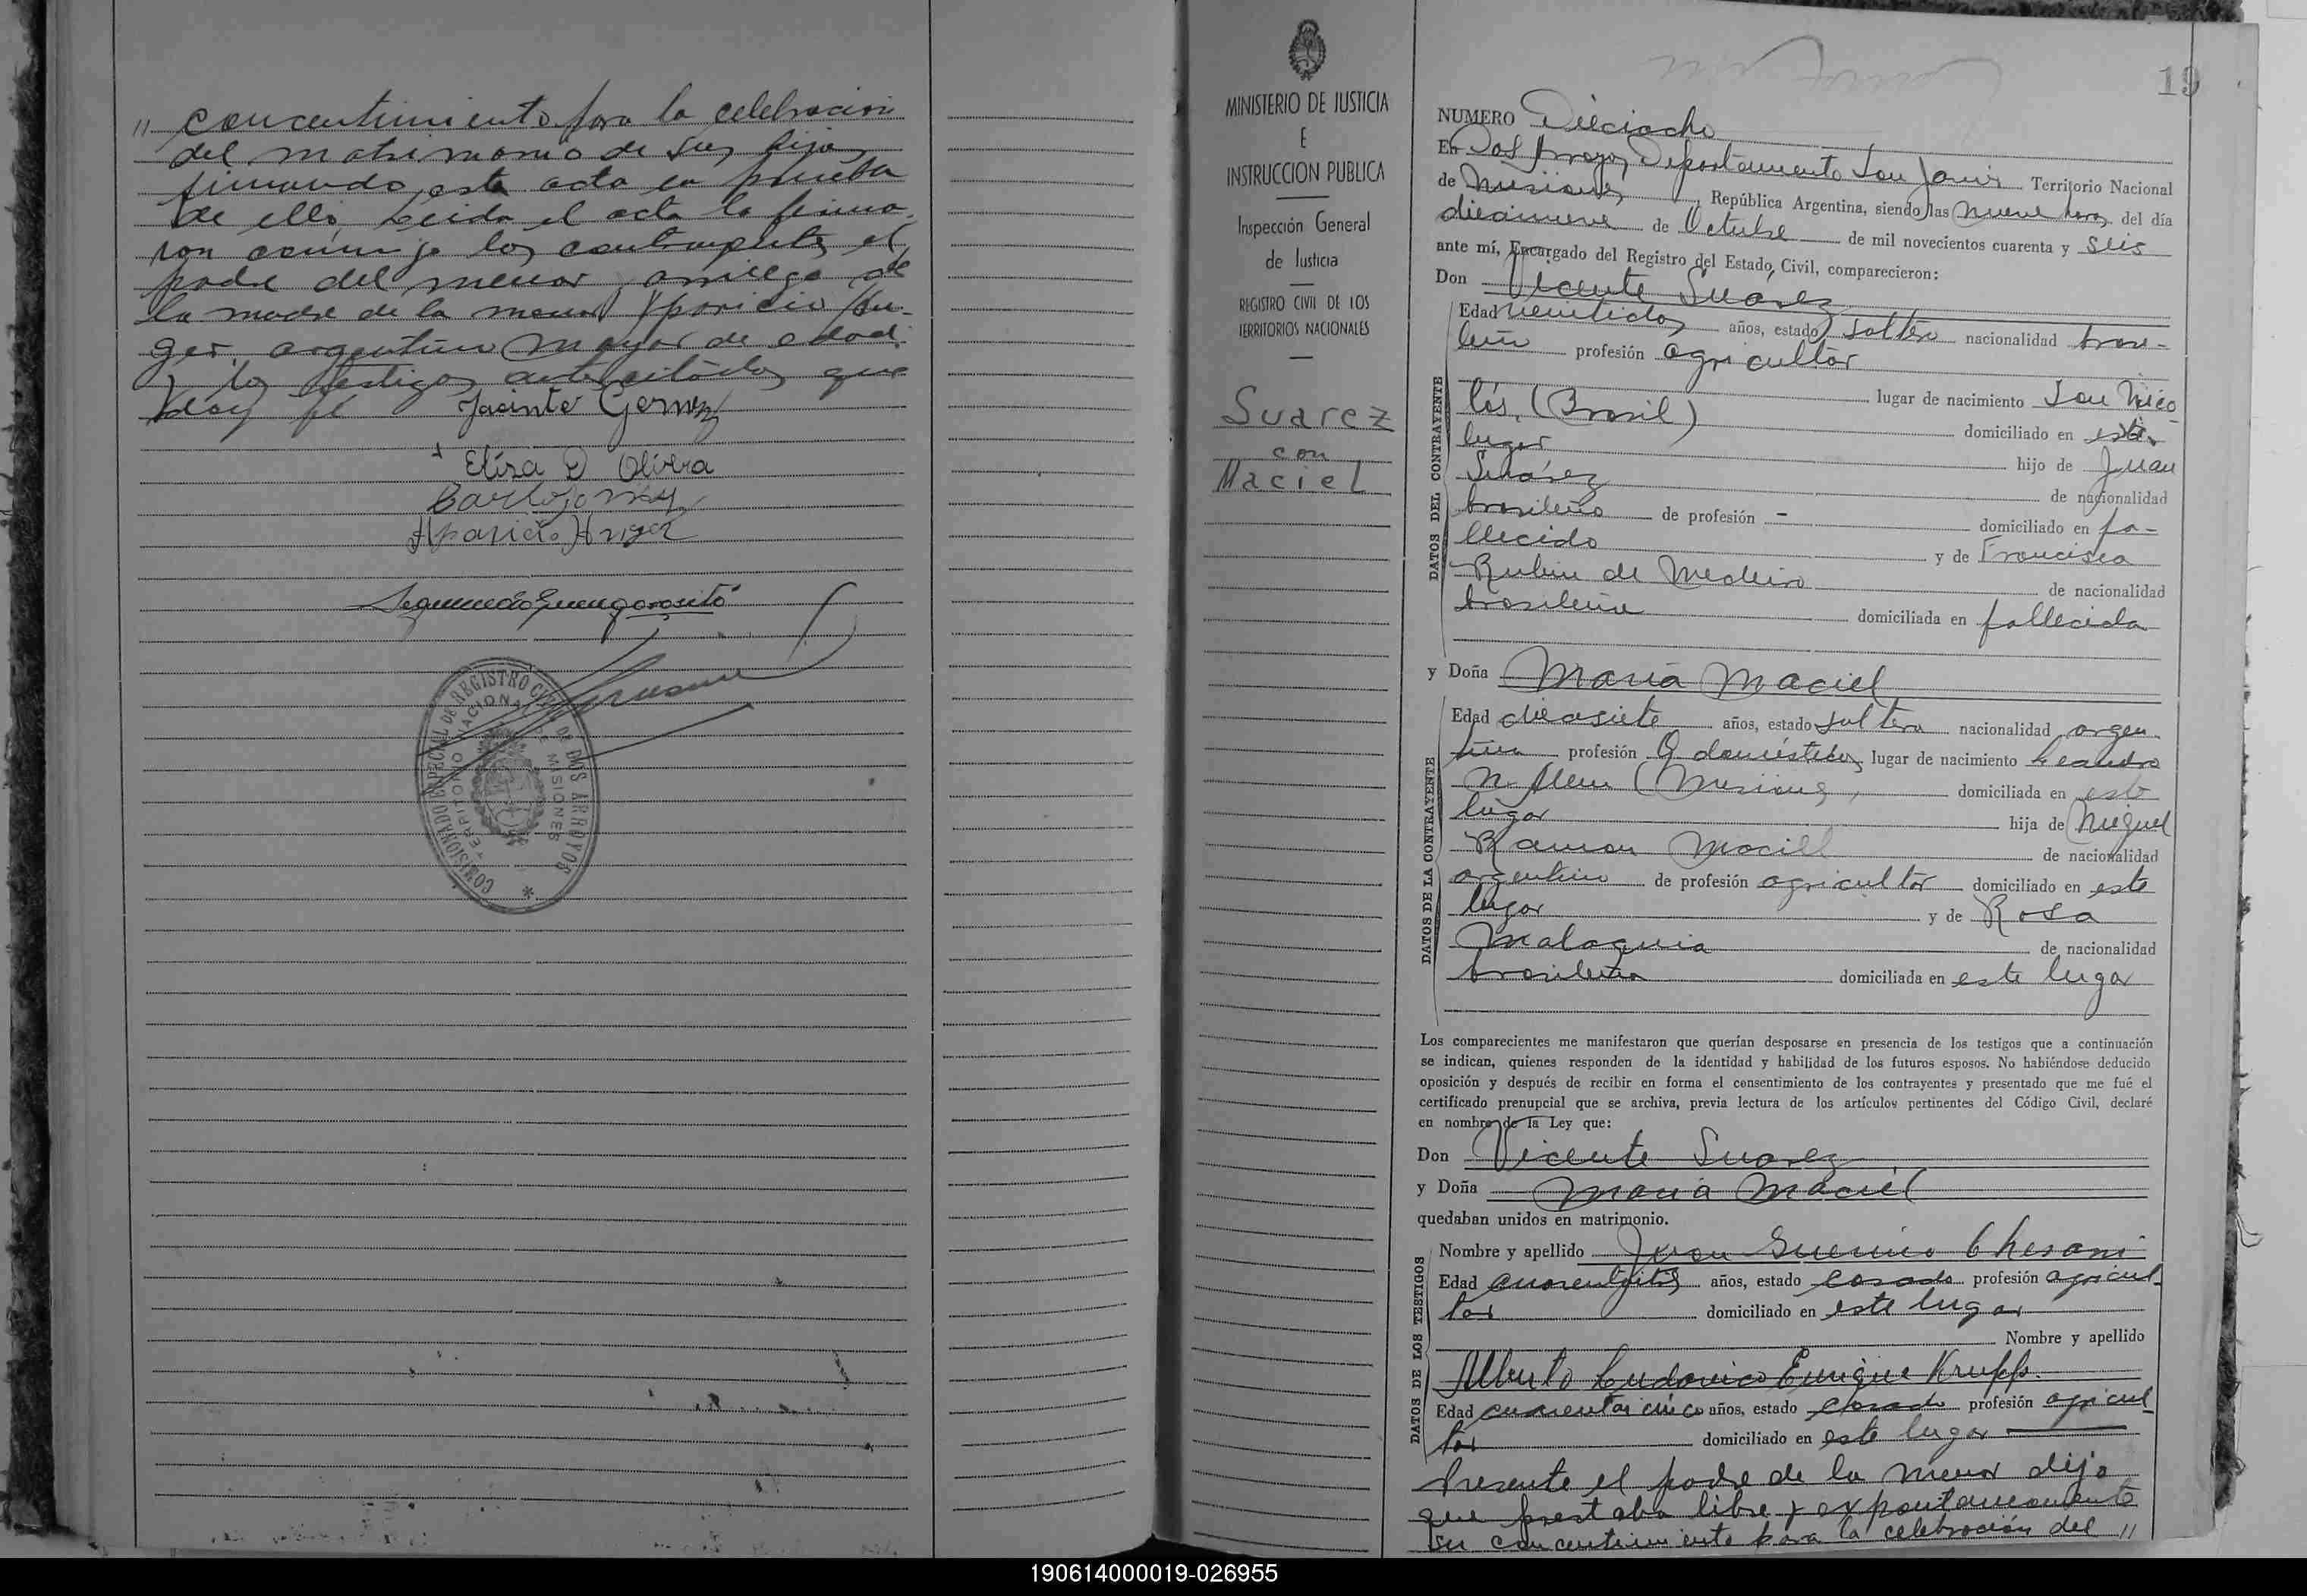 " concentimiento para la celebracion
del matrimonio de sus hijos
firmando esta acta en prueba
de ello. Leida el acta la firma-
ron conmigo los contrayentes el
padre del menor, a ruego de
la madre de la menor Aparicio An-
ger, argentino mayor de edad
y los testigos antes citados que
doy fé
Jacinto Gomez
+ Elisa D Olivera
Aparicio Anger
COMISIONADO ESPECIAL DE REGISTRO CIVIL DE DOS ARROYOS
TERRITORIO NACIONAL DE MISIONES
MINISTERIO DE JUSTICIA
E
INSTRUCCION PUBLICA
Inspección General
de Justicia
REGISTRO CIVIL DE LOS
TERRITORIOS NACIONALES
Suarez
con
Maciel
19
NUMERO Dieciocho
En Dos Arroyos, Departamento San Javier Territorio Nacional
de Misiones, República Argentina, siendo las nueve horas del día
diecinueve de Octubre de mil novecientos cuarenta y seis
ante mí, Encargado del Registro del Estado Civil, comparecieron:
Don Vicente Suárez
DATOS DEL CONTRAYENTE
Edad veintidos años, estado soltero nacionalidad brasi-
leño profesión agricultor
lugar de nacimiento San Nico-
lás, (Brasil) domiciliado en este
lugar hijo de Juan
Suárez de nacionalidad
brasileño de profesión - domiciliado en fa-
llecido y de Francisca
Rubin de Medeiro de nacionalidad
brasileña domiciliada en fallecida
y Doña Maria Maciel
DATOS DE LA CONTRAYENTE
Edad diecisiete años, estado soltera nacionalidad argen-
tina profesión Q domésticos lugar de nacimiento Leandro
N. Alem (Misiones, domiciliada en este
lugar hija de Miguel
Ramon Maciel de nacionalidad
argentino de profesión agricultor domiciliado en este
lugar y de Rosa
Malaquia de nacionalidad
brasileña domiciliada en este lugar
Los comparecientes me manifestaron que querían desposarse en presencia de los testigos que a continuación
se indican, quienes responden de la identidad y habilidad de los futuros esposos. No habiéndose deducido
oposición y después de recibir en forma el consentimiento de los contrayentes y presentado que me fué el
certificado prenupcial que se archiva, previa lectura de los artículos pertinentes del Código Civil, declaré
en nombre de la Ley que:
Don Vicente Suarez
y Doña Maria Maciel
quedaban unidos en matrimonio.
DATOS DE LOS TESTIGOS
Nombre y apellido Juan Guerino Chesani
Edad años, estado casado profesión agricul-
tor domiciliado en este lugar
Nombre y apellido
Alberto Ludovico Enrique Krupp.
Edad cuarentaicinco años, estado casado profesión agricul-
tor domiciliado en este lugar
Presente el padre de la menor dijo
que prestaba libre y expontaneamente
su concentimiento para la celebración del "
190614000019-026955